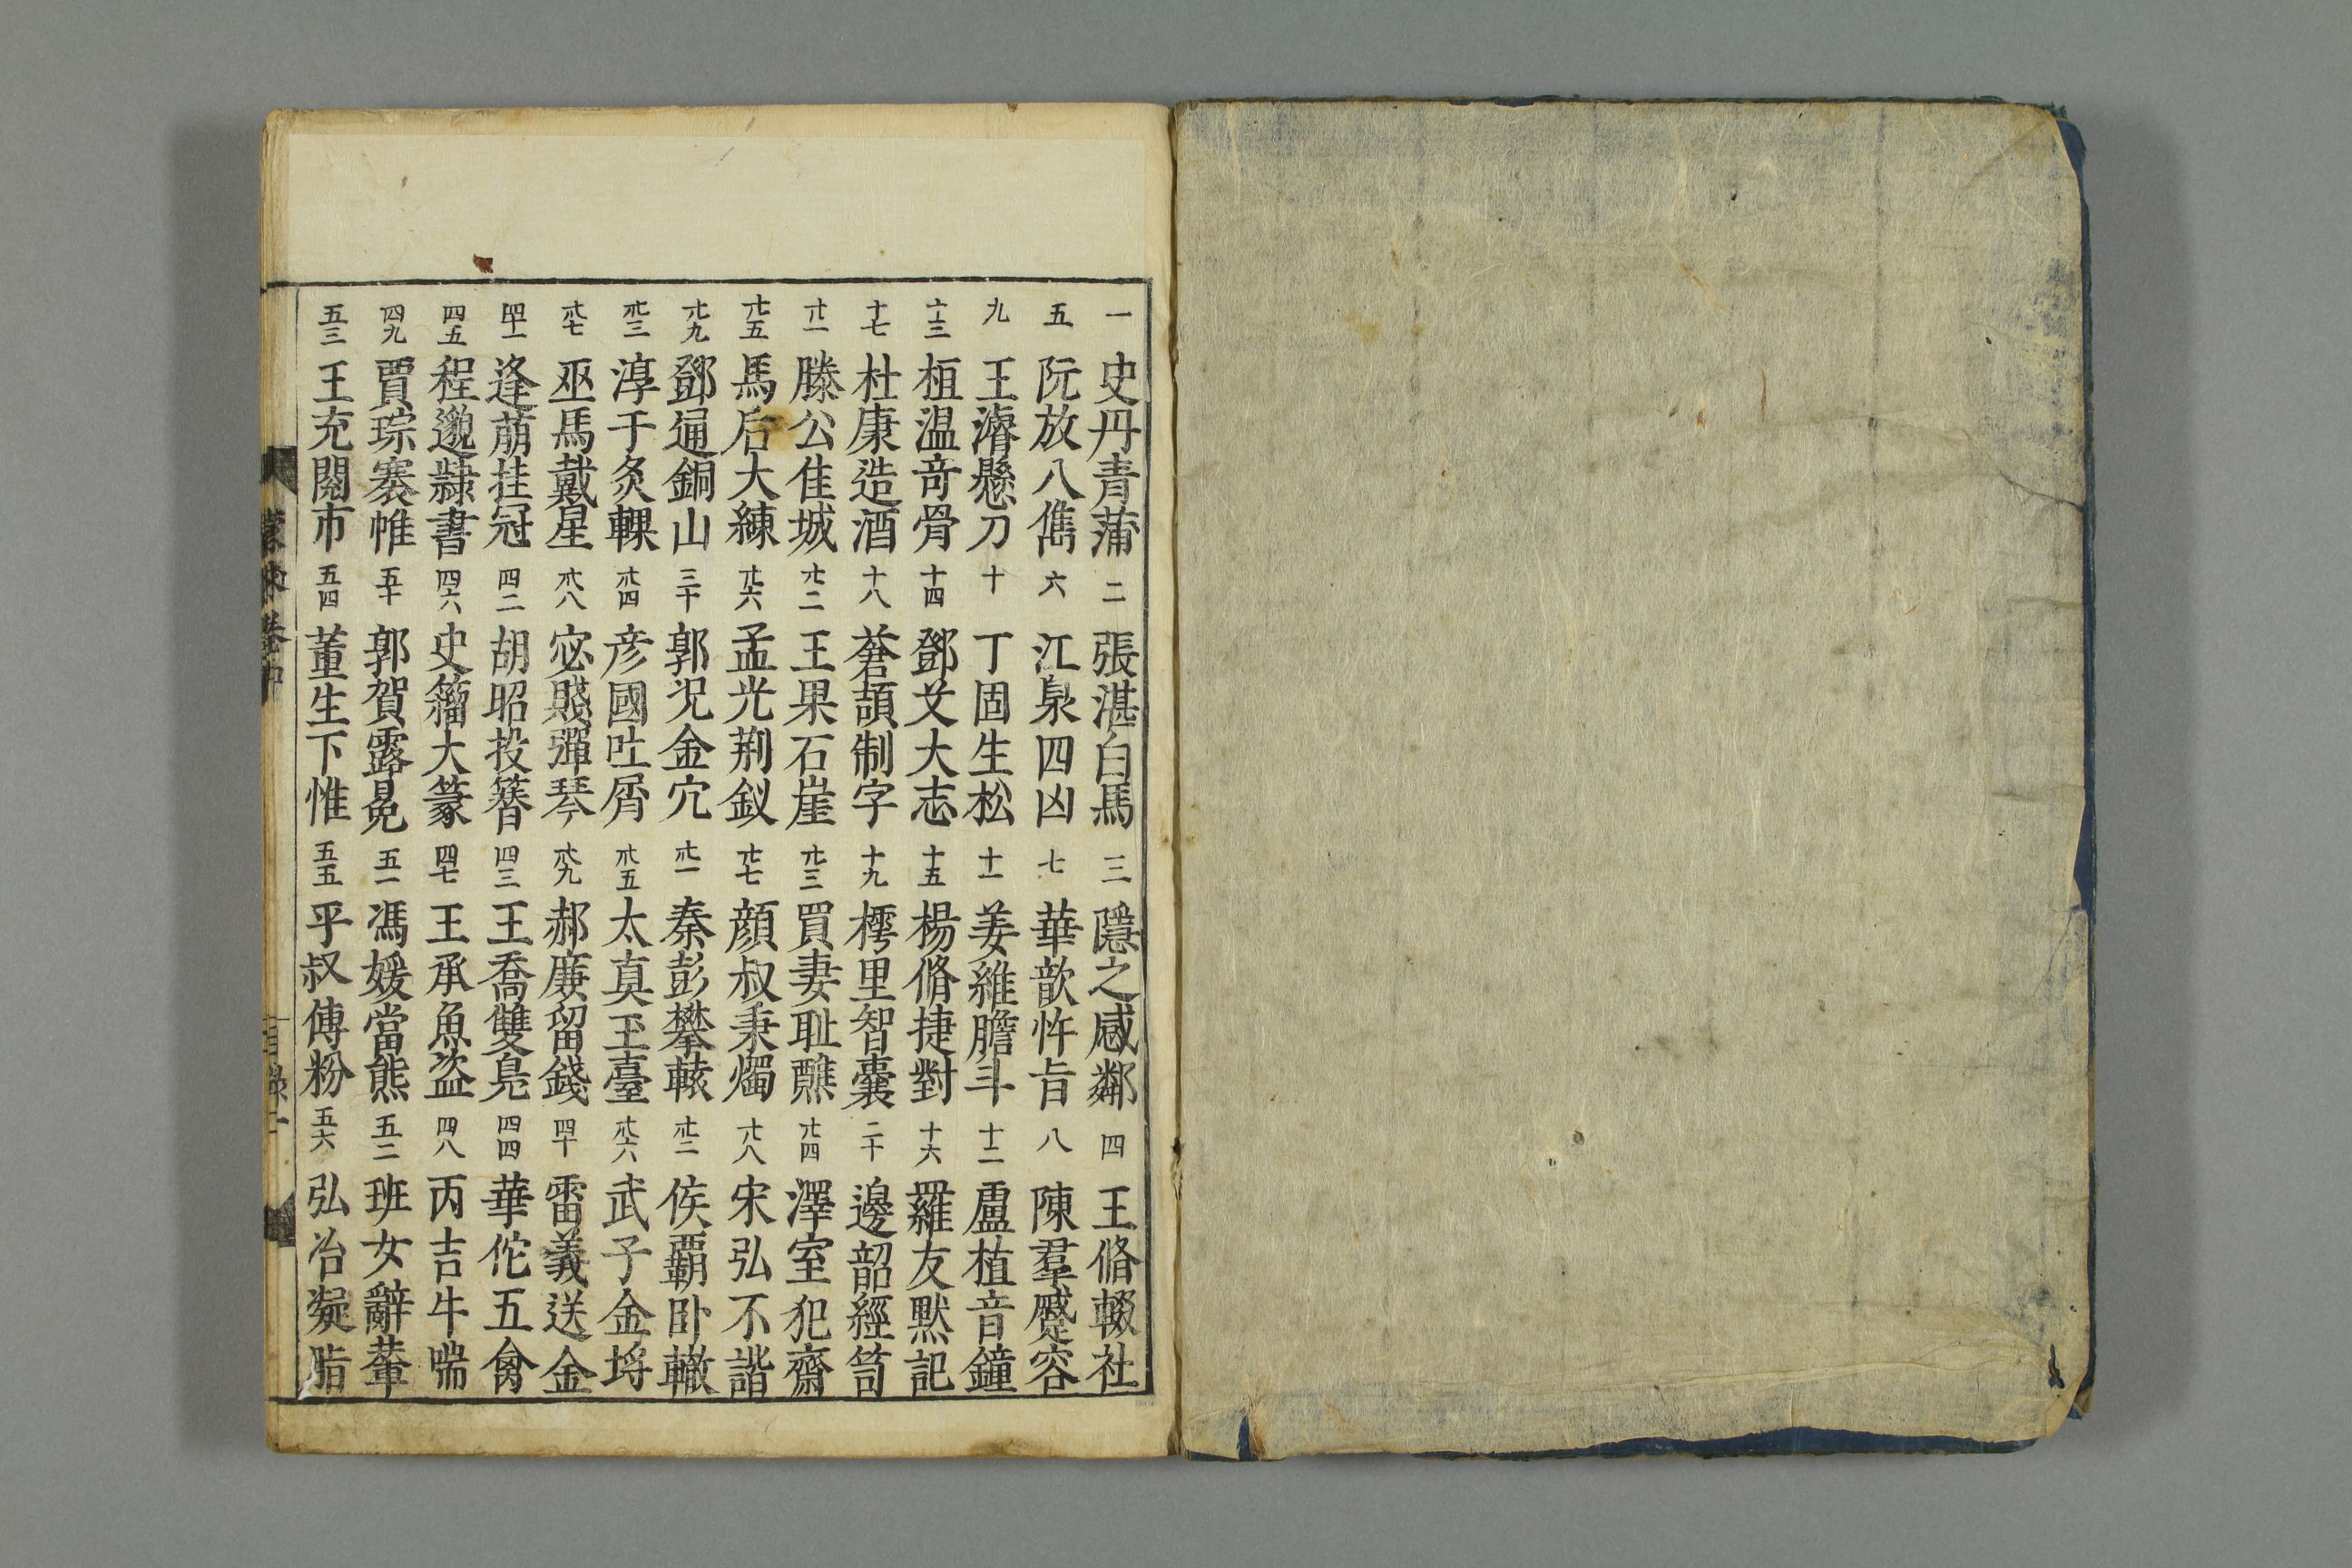 一 史丹青蒲 二 張湛白馬 三 隱之感鄰 四 王脩輟社
五 阮放八儁 六 江泉四凶 七 華歆忤旨 八 陳羣蹙容
九 王濬懸刀 十 丁固生松 十一 姜維膽斗 十二 盧植音鐘
十三 桓温竒骨 十四 鄧艾大志 十五 楊脩捷對 十六 羅友默記
十七 杜康造酒 十八 蒼頡制字 十九 樗里智囊 二十 邊韶經笥
廿一 滕公佳城 廿二 王果石崖 廿三 買妻耻醮 廿四 澤室犯齋
廿五 馬后大練 廿六 孟光荆釵 廿七 顔叔秉燭 廿八 宋弘不諧
廿九 鄧通銅山 三十 郭况金穴 卅一 秦彭攀轅 卅二 侯霸卧轍
卅三 淳于炙輠 卅四 彦國吐屑 卅五 太真玉臺 卅六 武子金埒
卅七 巫馬戴星 卅八 宓賤彈琴 卅九 郝廉留錢 四十 雷義送金
四一 逢萌挂冠 四二 胡昭投簪 四三 王喬雙鳧 四四 華佗五禽
四五 程邈隸書 四六 史籀大篆 四七 王承魚盗 四八 丙吉牛喘
四九 賈琮褰帷 五十 郭賀露冕 五一 馮媛當熊 五二 班女辭輦
五三 王充閱市 五四 董生下惟 五五 平叔傅粉 五六 弘治凝脂
蒙求卷中 目録一